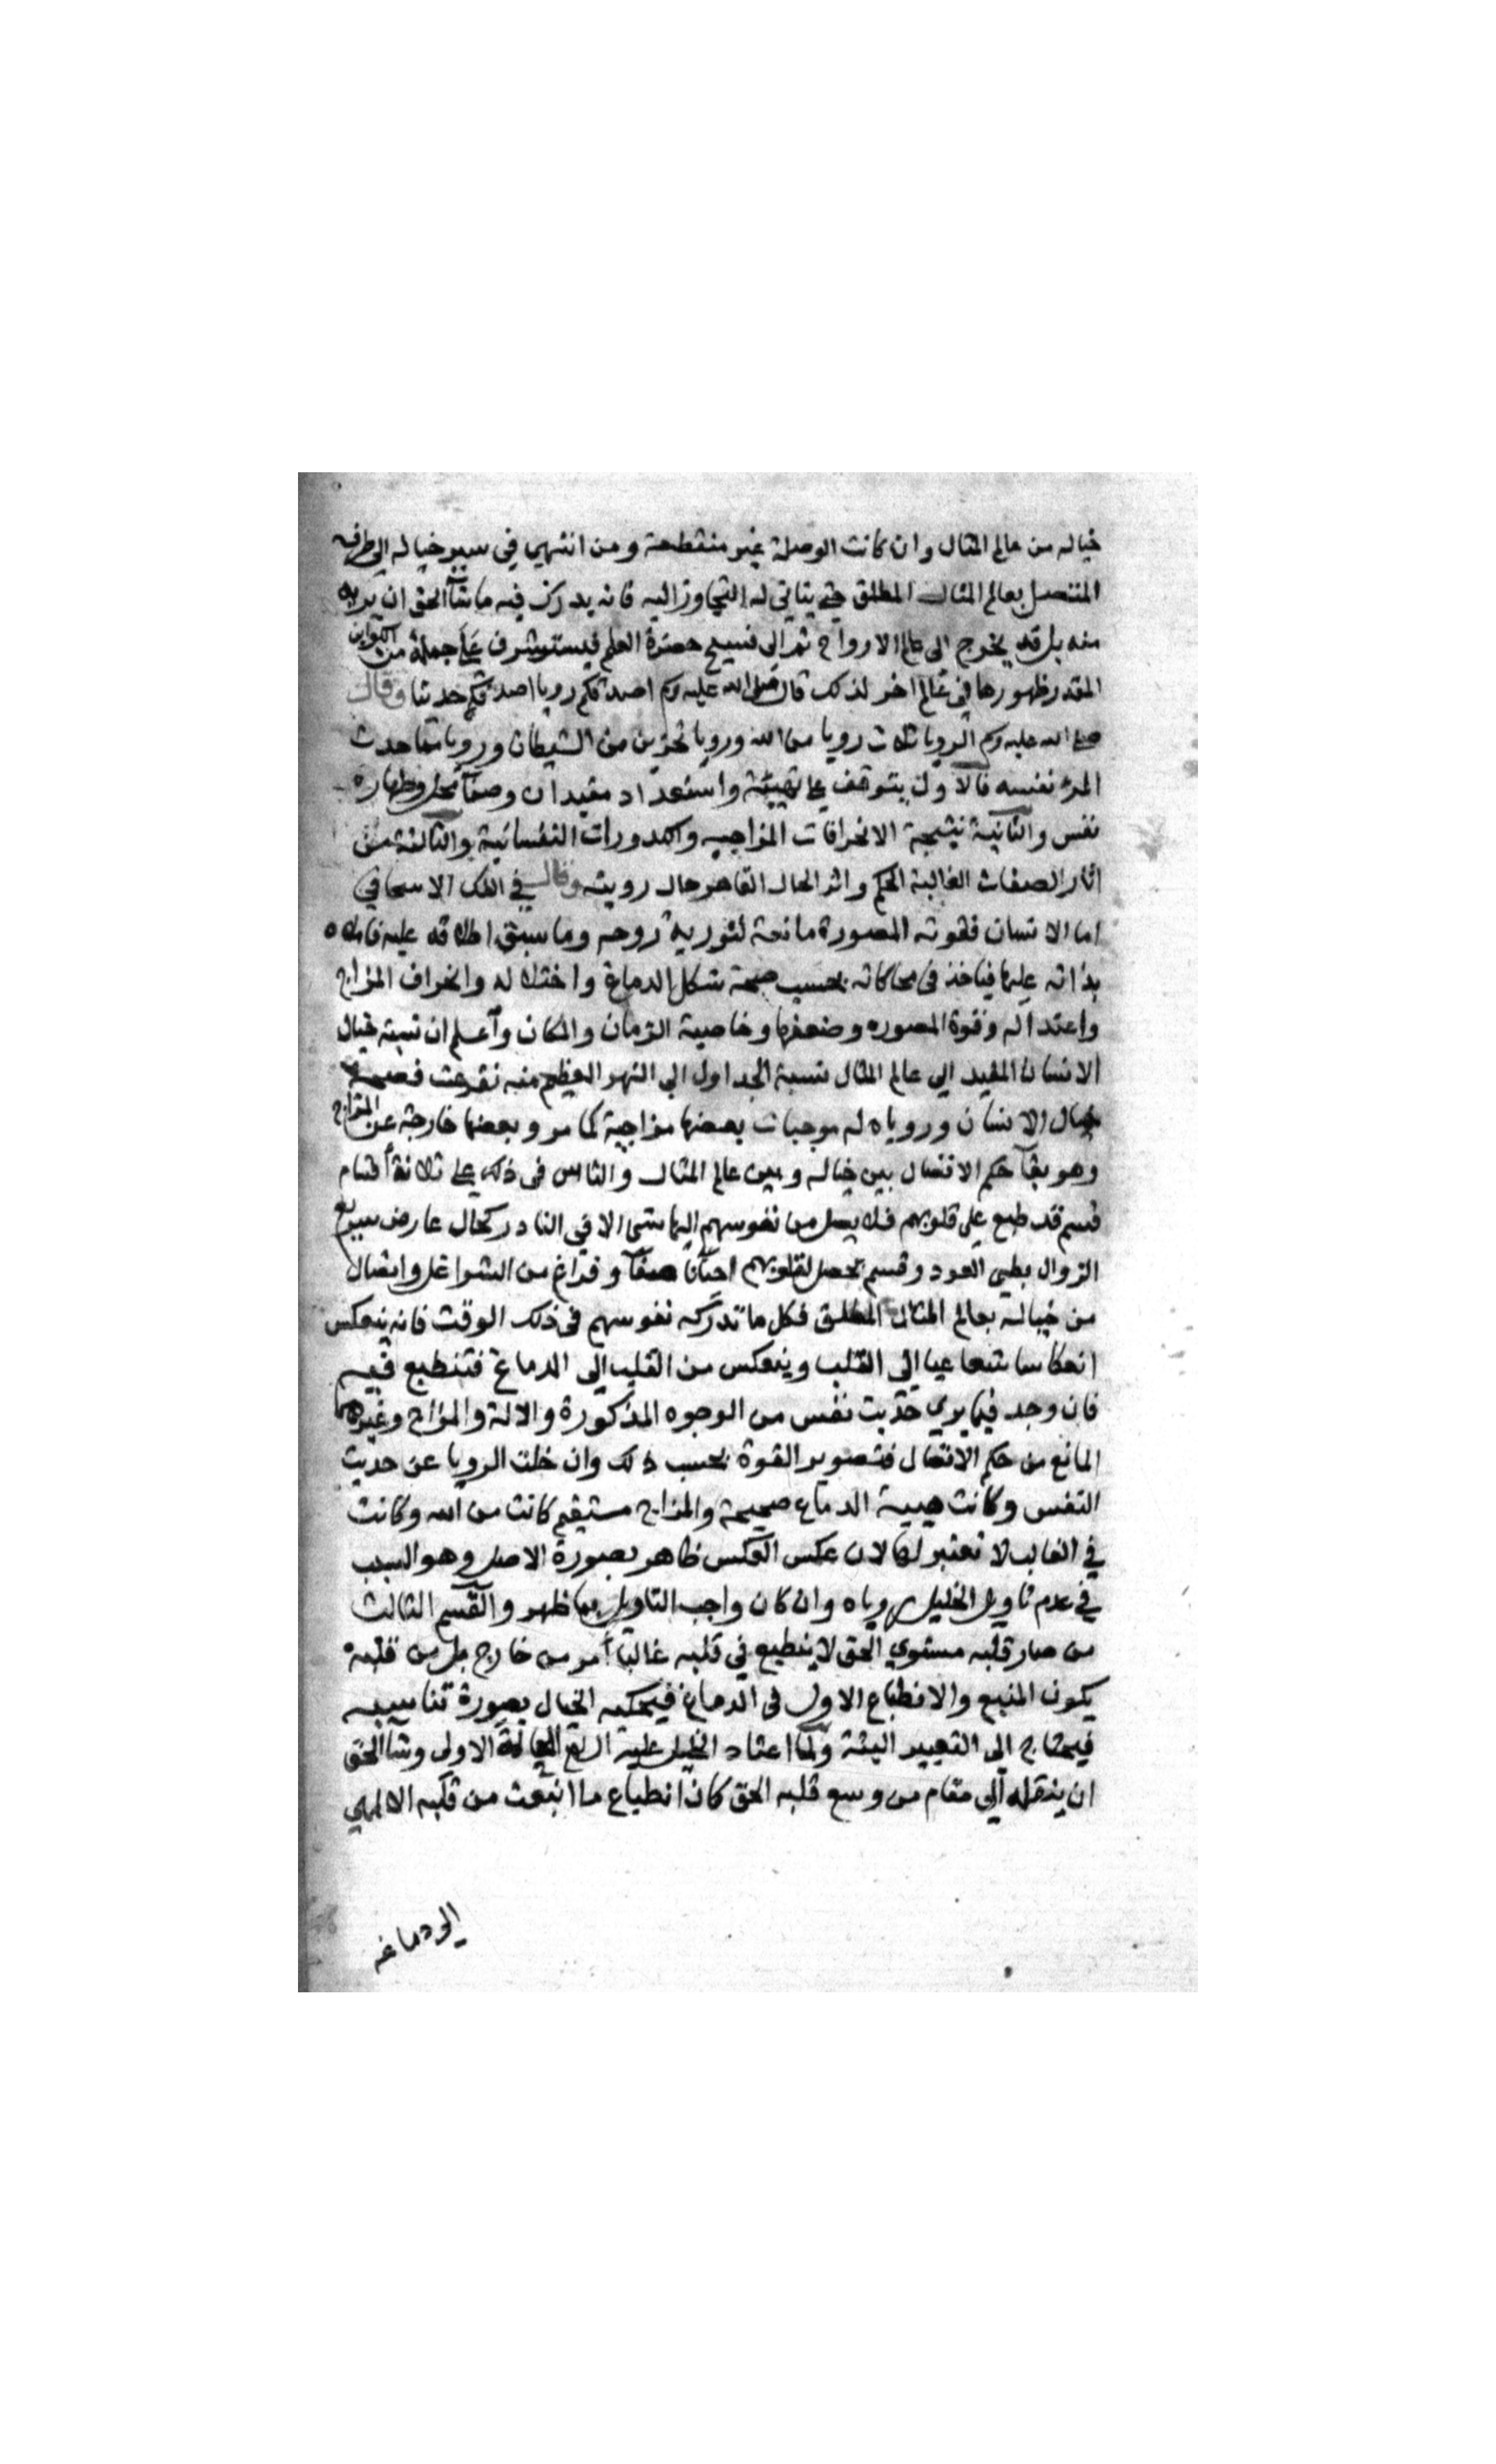 خياله من عالم المثال وان كانت الوصلة غير منقطعة ومن انتهى في سير خياله الى طرفه
المتصل بعالم المثال المطلق حتى يتاتى له التجاوز اليه فانه يدرك فيه ما شآ الحق ان يريه
منه بل قد يخرج الى عالم الارواح ثم الى فسيح حضرة العلم فيستشرف على جملة من الكواين
المقدر ظهورها في عالم اخر لذلك قال صلى الله عليه وسلم اصدقكم رويا اصدقكم حديثا وقال
صلى الله عليه وسلم الرويا ثلاث رويا من الله ورويا تحزين من الشيطان ورويا مما حدث
المرء نفسه فالاول يتوقف على تهيئة واستعداد مفيدان وصفآ محل وطهارة
نفس والثانية نتيجة الانحرافات المزاجيه والكدورات النفسانية والثالثة من
اثار الصفات الغالبة الحكم واثر الحال القاهر حال رويته وقال في الفك الاسحاقي
اما الانسان فقوته المصورة مانعة لنورية روحه وما سبق اطلاقه عليه
بذاته عليها فياخذ في محاكاته بحسب صحة شكل الدماغ واختلاله وانحراف المزاج
واعتداله وقوة المصوره وضعفها وخاصية الزمان والمكان وآعلم ان نسبة خيال
الانسان المقيد الى عالم المثال نسبة الجداول الى النهر العظيم منه تفرعت فصحة
خيال الانسان وروياه له موجبات بعضها مزاجية كما مر وبعضها خارجة عن المزاج
وهو بقآ حكم الاتصال بين خياله وبين عالم المثال والناس في ذلك على ثلاثة أقسام
قسم قد طبع على قلوبهم فلا يصل من نفوسهم اليها شى الا في النادر كحال عارض سريع
الزوال بطى العود وقسم يحصل لقلوبهم احيانا صفآ وفراغ من الشواغل واتصال
من خياله بعالم المثال المطلق فكل ما تدركه نفوسهم في ذلك الوقت فانه ينعكس
انعكاسا شعاعيا الى القلب وينعكس من القلب الى الدماغ فتنطبع فيه
فان وجد فيما يرى حديث نفس من الوجوه المذكورة والالة والمزاج وغيرهما
المانع من حكم الاتصال فتصوير القوة بحسب ذلك وان خلت الرويا عن حديث
النفس وكانت هيية الدماغ صحيحة والمزاج مستقيم كانت من الله وكانت
في الغالب لا تعتبر لها لان عكس العكس ظاهر بصورة الاصل وهو السبب
في عدم تاويل الخليل روياه وان كان واجب التاويل بما ظهر والقسم الثالث
من صار قلبه مستوي الحق لا ينطبع في قلبه غالبا أمر من خارج بل من قلبه
يكون المنبع والانطباع الاول في الدماغ فيحكيه الخيال بصورة تناسبه
فيحتاج الى التعبير البتة ولما اعتاد الخليل عليه السلام الحالة الاولى وشآ الحق
ان ينقله الى مقام من وسع قلبه الحق كان انطباع ما انبعث من قلبه الالهي
الى دماغه